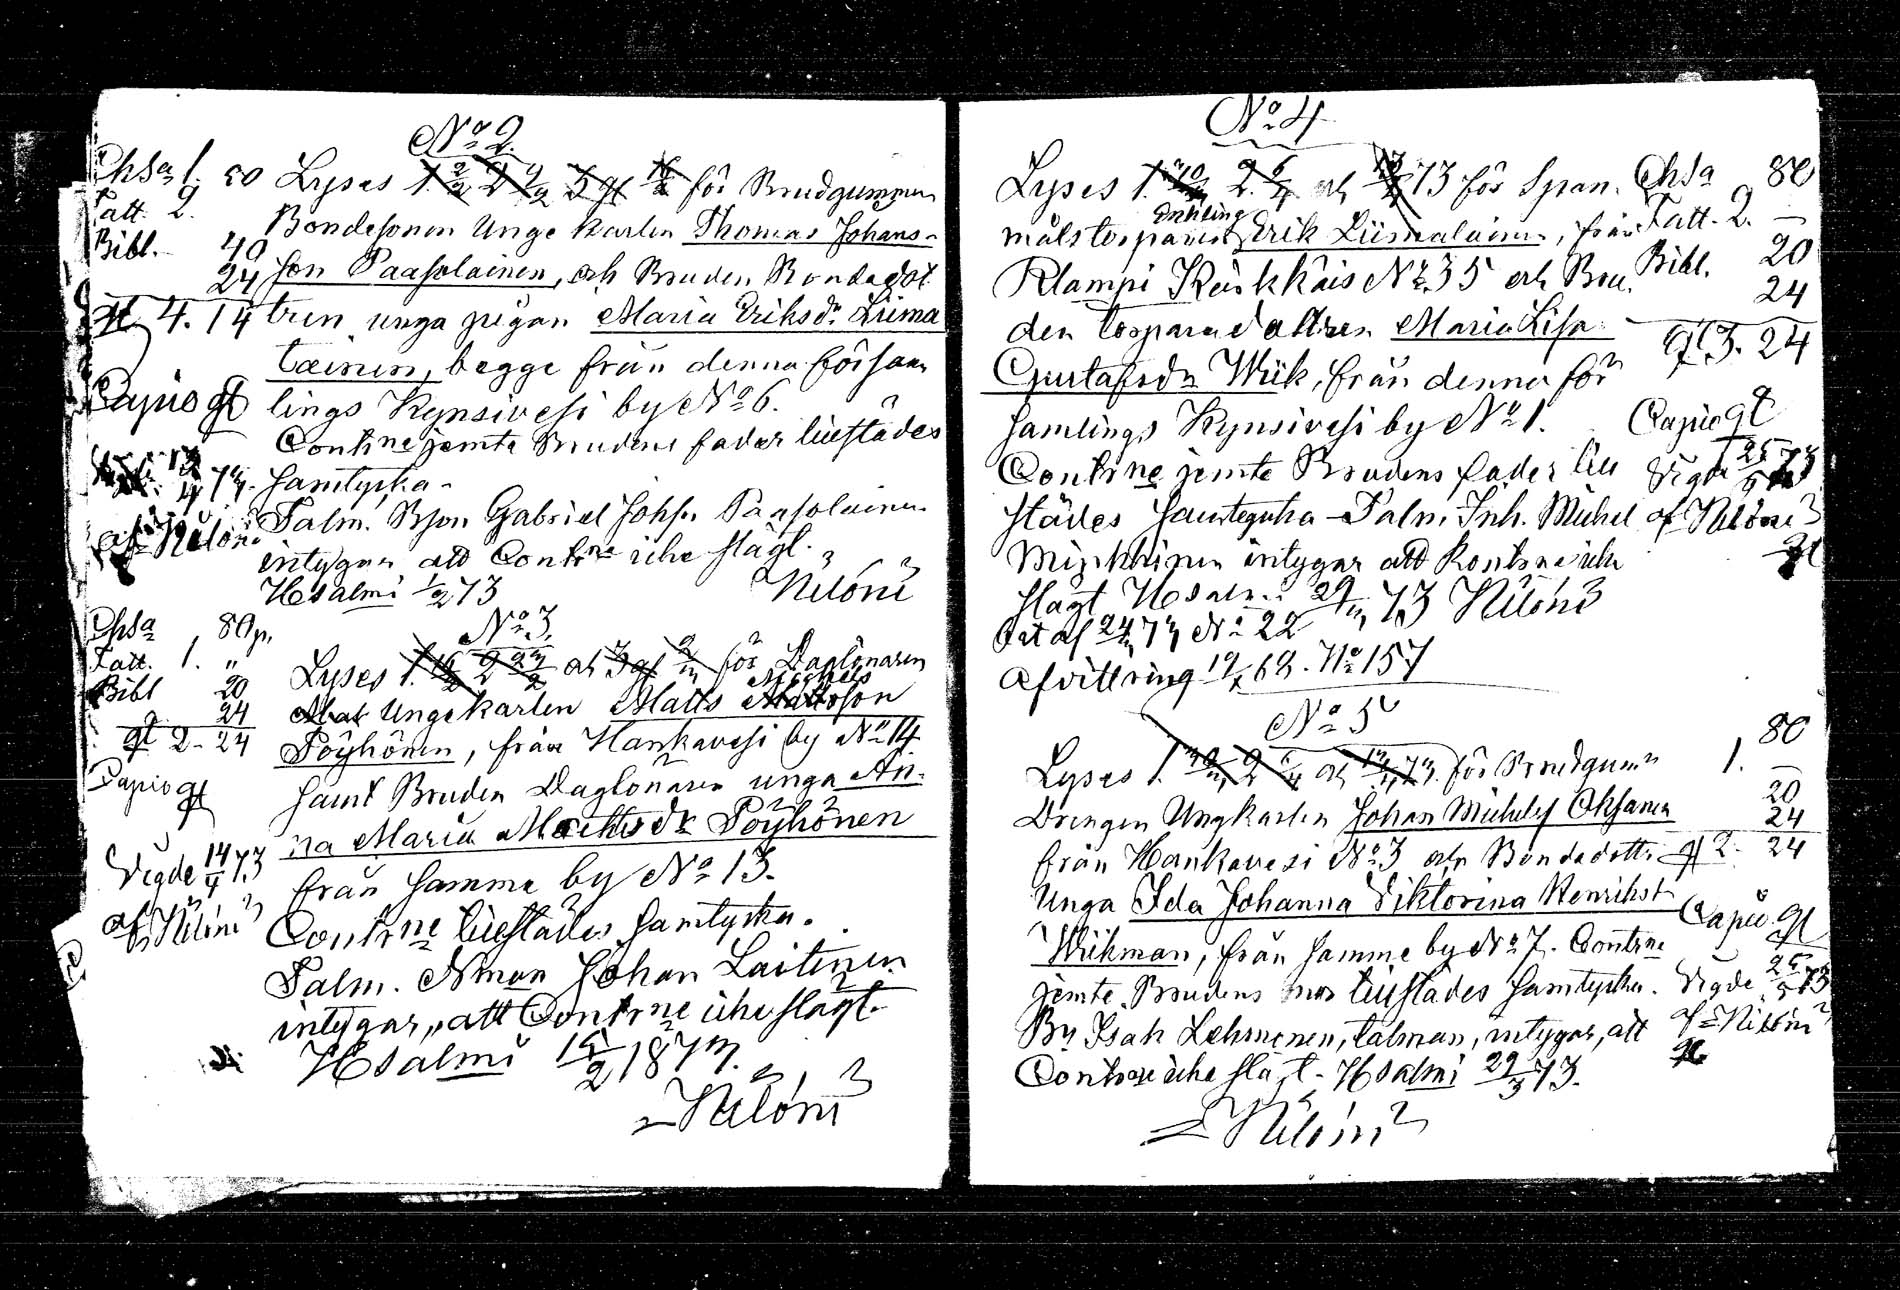 No 2.
Lyses 1. 2/2 2 9/2 3 gg 16/2 för Brudgummen
Bondesonen Unge Karlen Thomas Johans-
son Paasolainen, och Bruden Bondedot
tren unga pigan Maria Eriksdr Liima
tainen, begge från denna försam
lings Kynsivesi by No 6.
Contrne jemte Brudens fader tillstädes
samtycka.
Talm. Bson Gabriel Johsn Paasolainen
intygar att Contrne icke slägt.
Hsalmi 1/2 73
Chsa 1. 80
Fatt. 2.
Bibl. 40
24
4. 14
Capio
4 73.
No 3.
Lyses 1. 16/2 2 23/2 och 3 gg 2/3 för Daglönaren
Michels
Ungekarlen Matts Mattsson
Pöyhönen, från Hankavesi by No 14
samt Bruden Daglönaren unga An-
na Maria Mattsdr Pöyhönen
från samma by No 13.
Contrne tillstädes samtycka.
Talm. Nman Johan Laitinen
intygar, att Contrne icke slägt.
Hsalmi 15/2 1873.
Chsa 80 p.
Fatt. 1. "
Bibl 20
24
2 - 24
Capio
Vigde 14/4 73
af
No 4
Lyses 1. 30/3 2. 6/4 och 13/4 73 för Span.
Enkling
målstorparen Erik Liimatainen, från
Klampi Kärkkäis No 35 och Bru-
den torparedottren Maria Lisa
Gustafsdr Wiik, från denna för
samlings Kynsivesi by No 1.
Contrne jemte Brudens fader till
städes samtycka - Talm. Inh. Michel
Minkkinen intygar att Kontrne icke
slägt Hsalmi 29/3 73
Att af 24/3 73 No 22
Afvittring 19/x 68. No 157
Chsa 80
Fatt. 2. —
Bibl. 20
24
3. 24
Capio
Vigde 25/5 73
af
No 5
Lyses 1. 30/3 2 6/4 och 13/4 73. för Brudgumn
Drengen Ungkarlen Johan Michelss Oksanen
från Hankavesi No 3 och Bondedottr
Unga Ida Johanna Viktorina Henriksdr
Wiikman, från samma by No 7. Contrne
jemte Brudens mor tillstädes samtycka.
Bn Isak Lehmonen, talman, intygar, att
Contrne icke slägt - Hsalmi 29/3 73.
80
1. —
20
24
2. 24
Capio
Vigde 25/5 73
af